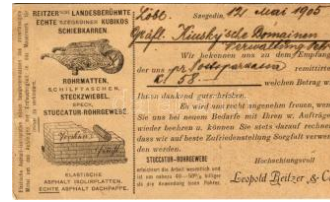 REITZER'sche LANDESBERÜHMTE
ECHTE SZEGEDINER KUBIKOS
SCHIEBKARREN.
ROHRMATTEN,
SCHILFTASCHEN,
STECKZWIEBEL,
SPECK,
STUCCATUR-ROHRGEWEBE.
ELASTISCHE
ASPHALT ISOLIRPLATTEN,
ECHTE ASPHALT DACHPAPPE.
Löbl.
Szegedin, 12 Mai 1905
Gräfl. Kinsky'sche Domainen
Verwaltung
Wir bekennen uns zu dem Empfang
der uns pr Postsparcassa
K. 58.- welchen Betrag wir
Ihnen dankend gutschreiben.
Es wird uns recht angenehm freuen, wenn
Sie uns bei neuem Bedarfe mit Ihren w. Aufträgen
wieder beehren u. können Sie stets darauf rechnen
dass wir auf beste Zufriedenstellung Sorgfalt verwenden
werden.
STUCCATUR-ROHRGEWEBE
erleichtert die Arbeit wesentlich und
ist um nahezu billiger
als die Anwendung losen Rohres.
Hochachtungsvoll
Leopold Reitzer & Co